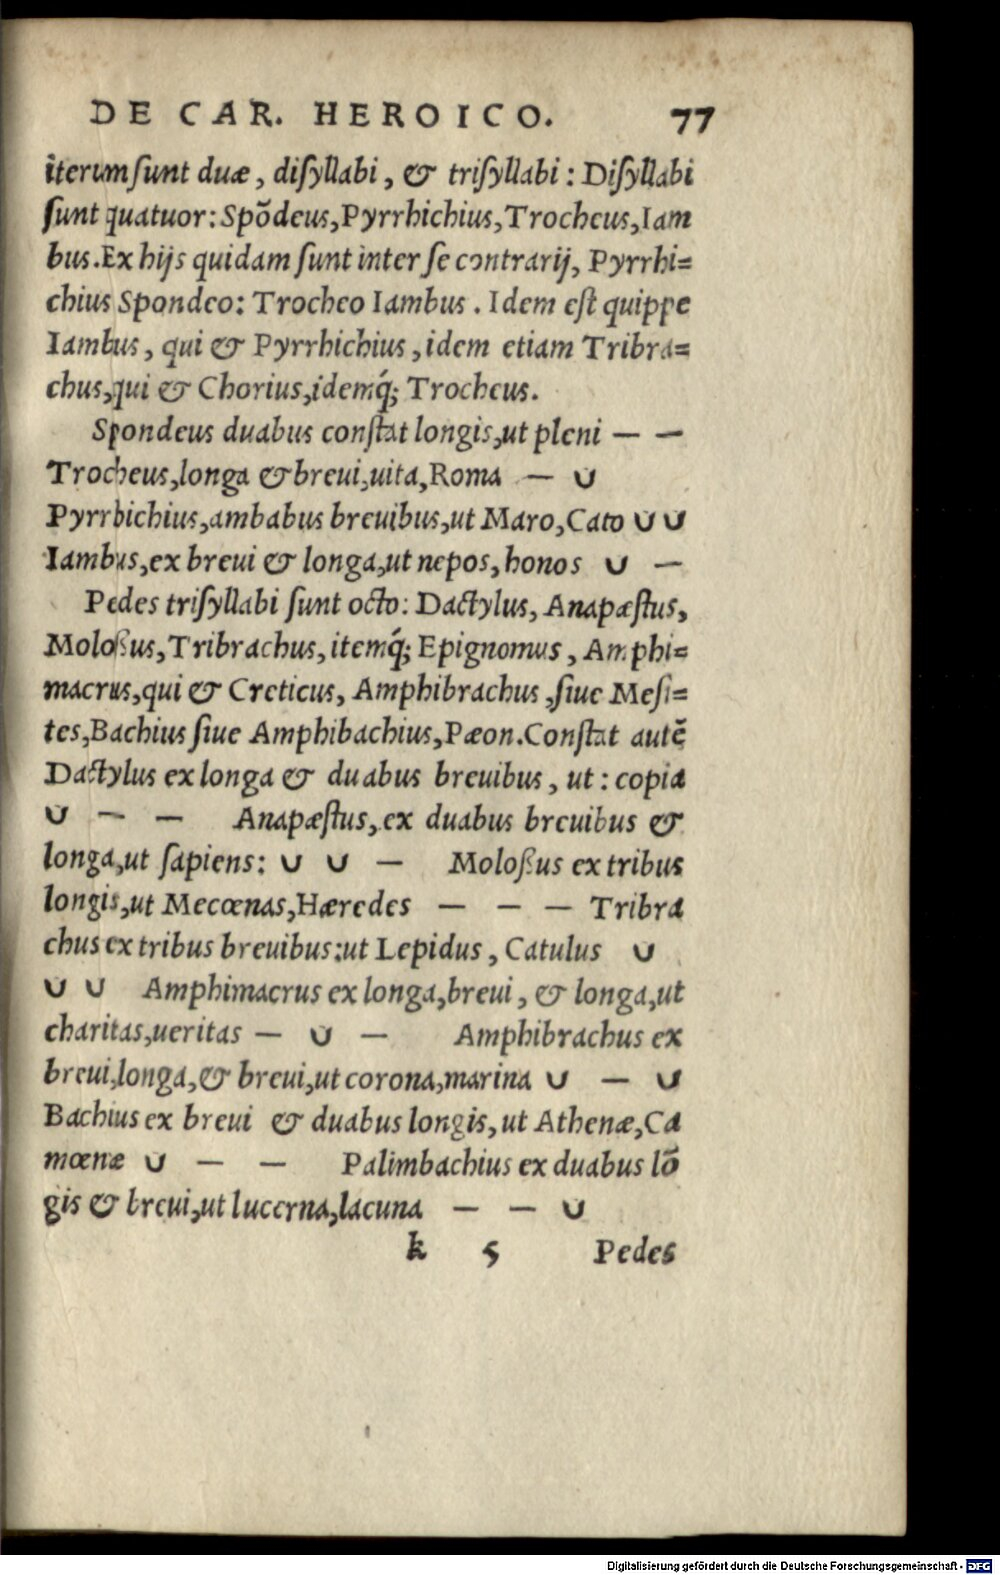 DE CAR. HEROICO. 77
iterum ſunt duæ, diſyllabi, & triſyllabi: Diſyllabi
ſunt quatuor: Spōdeus, Pyrrhichius, Trocheus, Iam
bus. Ex hijs quidam ſunt inter ſe contrarij, Pyrrhi=
chius Spondeo: Trocheo Iambus. Idem eſt quippe
Iambus, qui & Pyrrhichius, idem etiam Tribra=
chus, qui & Chorius, idemq́; Trocheus.
Spondeus duabus conſtat longis, ut pleni — —
Trocheus, longa & breui, uita, Roma — ∪
Pyrrhichius, ambabus breuibus, ut Maro, Cato ∪ ∪
Iambus, ex breui & longa, ut nepos, honos ∪ —
Pedes triſyllabi ſunt octo: Dactylus, Anapæſtus,
Moloßus, Tribrachus, itemq́; Epignomus, Amphi=
macrus, qui & Creticus, Amphibrachus, ſiue Meſi=
tes, Bachius ſiue Amphibachius, Pæon. Conſtat autē
Dactylus ex longa & duabus breuibus, ut: copia
∪ — — Anapæſtus, ex duabus breuibus &
longa, ut ſapiens: ∪ ∪ — Moloßus ex tribus
longis, ut Mecœnas, Hæredes — — — Tribra
chus ex tribus breuibus: ut Lepidus, Catulus ∪
∪ ∪ Amphimacrus ex longa, breui, & longa, ut
charitas, ueritas — ∪ — Amphibrachus ex
breui, longa, & breui, ut corona, marina ∪ — ∪
Bachius ex breui & duabus longis, ut Athenæ, Ca
mœnæ ∪ — — Palimbachius ex duabus lō
gis & breui, ut lucerna, lacuna — — ∪
k 5 Pedes
Digitalisierung gefördert durch die Deutsche Forschungsgemeinschaft - DFG